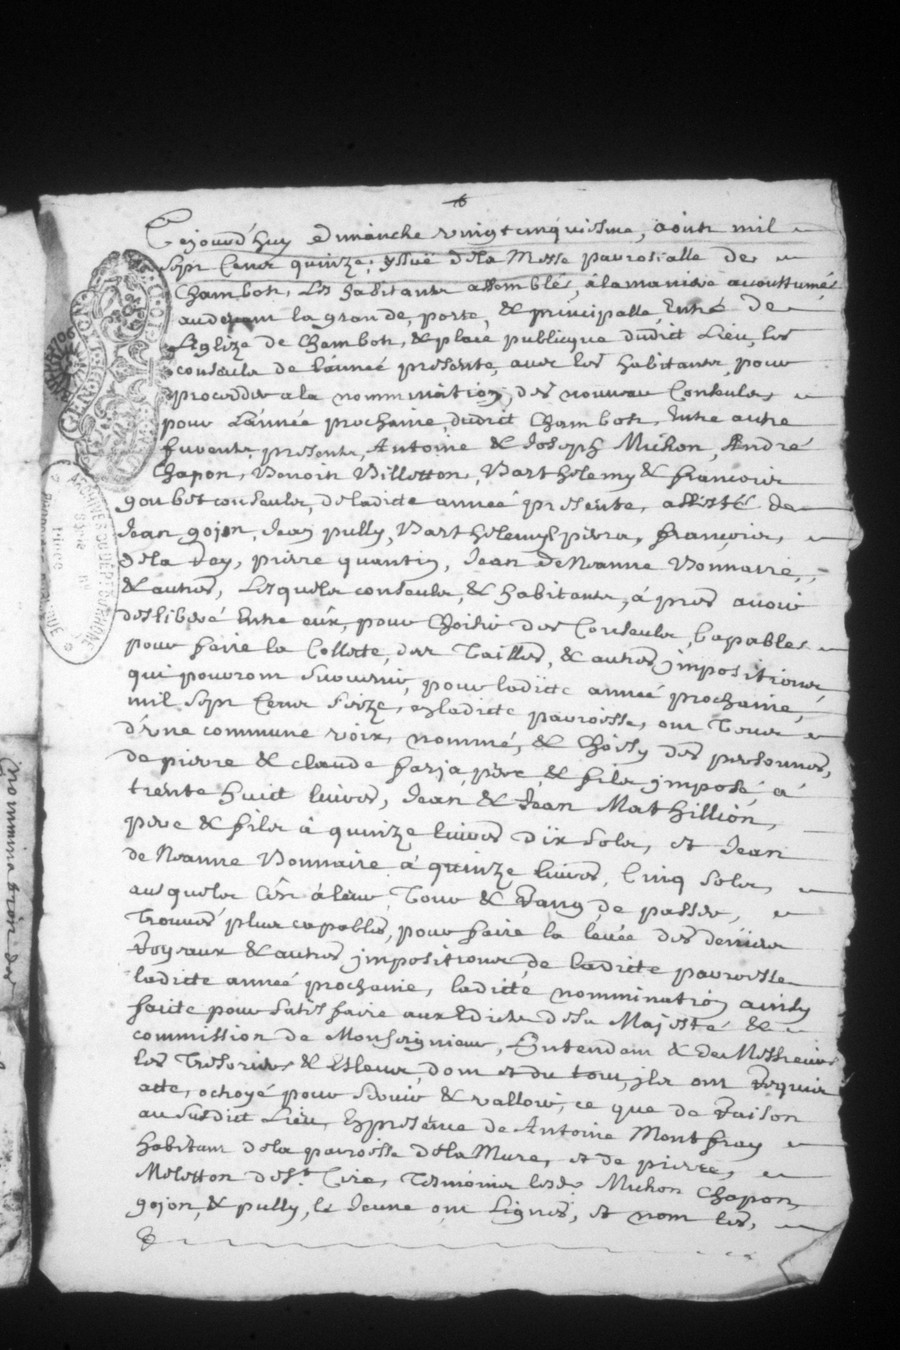 Cejourd'huy dimanche vingt cinquiesme, aoust mil
sept Cens quinze, yssuë dela Messe parrossialle de
Chambost, les habitants assemblés, àlamaniere accoustumée
audevant la grande, porte, & principalle Entrée De
L'Eglize de Chambost, & place publicque dudict Lieu, les
consuls de l'année presente, avec les habitants, pour
proceder a la nommination, des nouveau Consuls
pour L'année prochaine, dudict Chambost, Entre autre
furent presents, Antoine & Joseph Michon, André
Chapon, Benoist Billetton, Barthelemy & francois
goubet consuls, deladicte année presente, assisté de
Jean gojon, Jean pully, Barthelemy piera, francois,
dela Roy, pierre quantin, Jean DeNoanne Vonnaire,
& autres, Lesquels consuls, & habitants, à pres avoir
desliberé Entre eux, pour Choisir des Consuls, Capables
pour faire la Collecte, des Tailles, & autres jmpositions
qui pourront survenir, pour ladicte année prochaine,
mil sept Cens seize, enladicte parroisse, ont Tous
d'une commune voix, nommé, & Choisy des personnes,
de pierre & claude farja, pere & fils jmposé a
trente huict livres, Jean & Jean Mathillion,
pere & fils à quinze livres dix sols, et Jean
de Noanne Vonnaire à quinze livres, Cinq sols,
ausquels C'est àleur, Tour & Rang de passer,
Trouvés plus capables, pour faire la levée des deniers
Royaux & autres jmpositions de ladicte parroisse
ladicte année prochaine, ladicte nommination ainsy
faicte pour satisfaire aux Edicts desa Majesté &
commission de Monseignieur, L'Intendant & de Messieurs
les Tresoriers & Esleus, dont et du tout, jls ont Requis
acte, octroyé pour servir & valloir, ce que de Raison
au susdict Lieu, En presence de Antoine Montfray
habitant dela parroisse delaMure, et de pierre,
Meletton de St. Cire, Tesmoins lesds. Michon Chapon,
gojon, & pully, le Jeune ont signés, et non les,